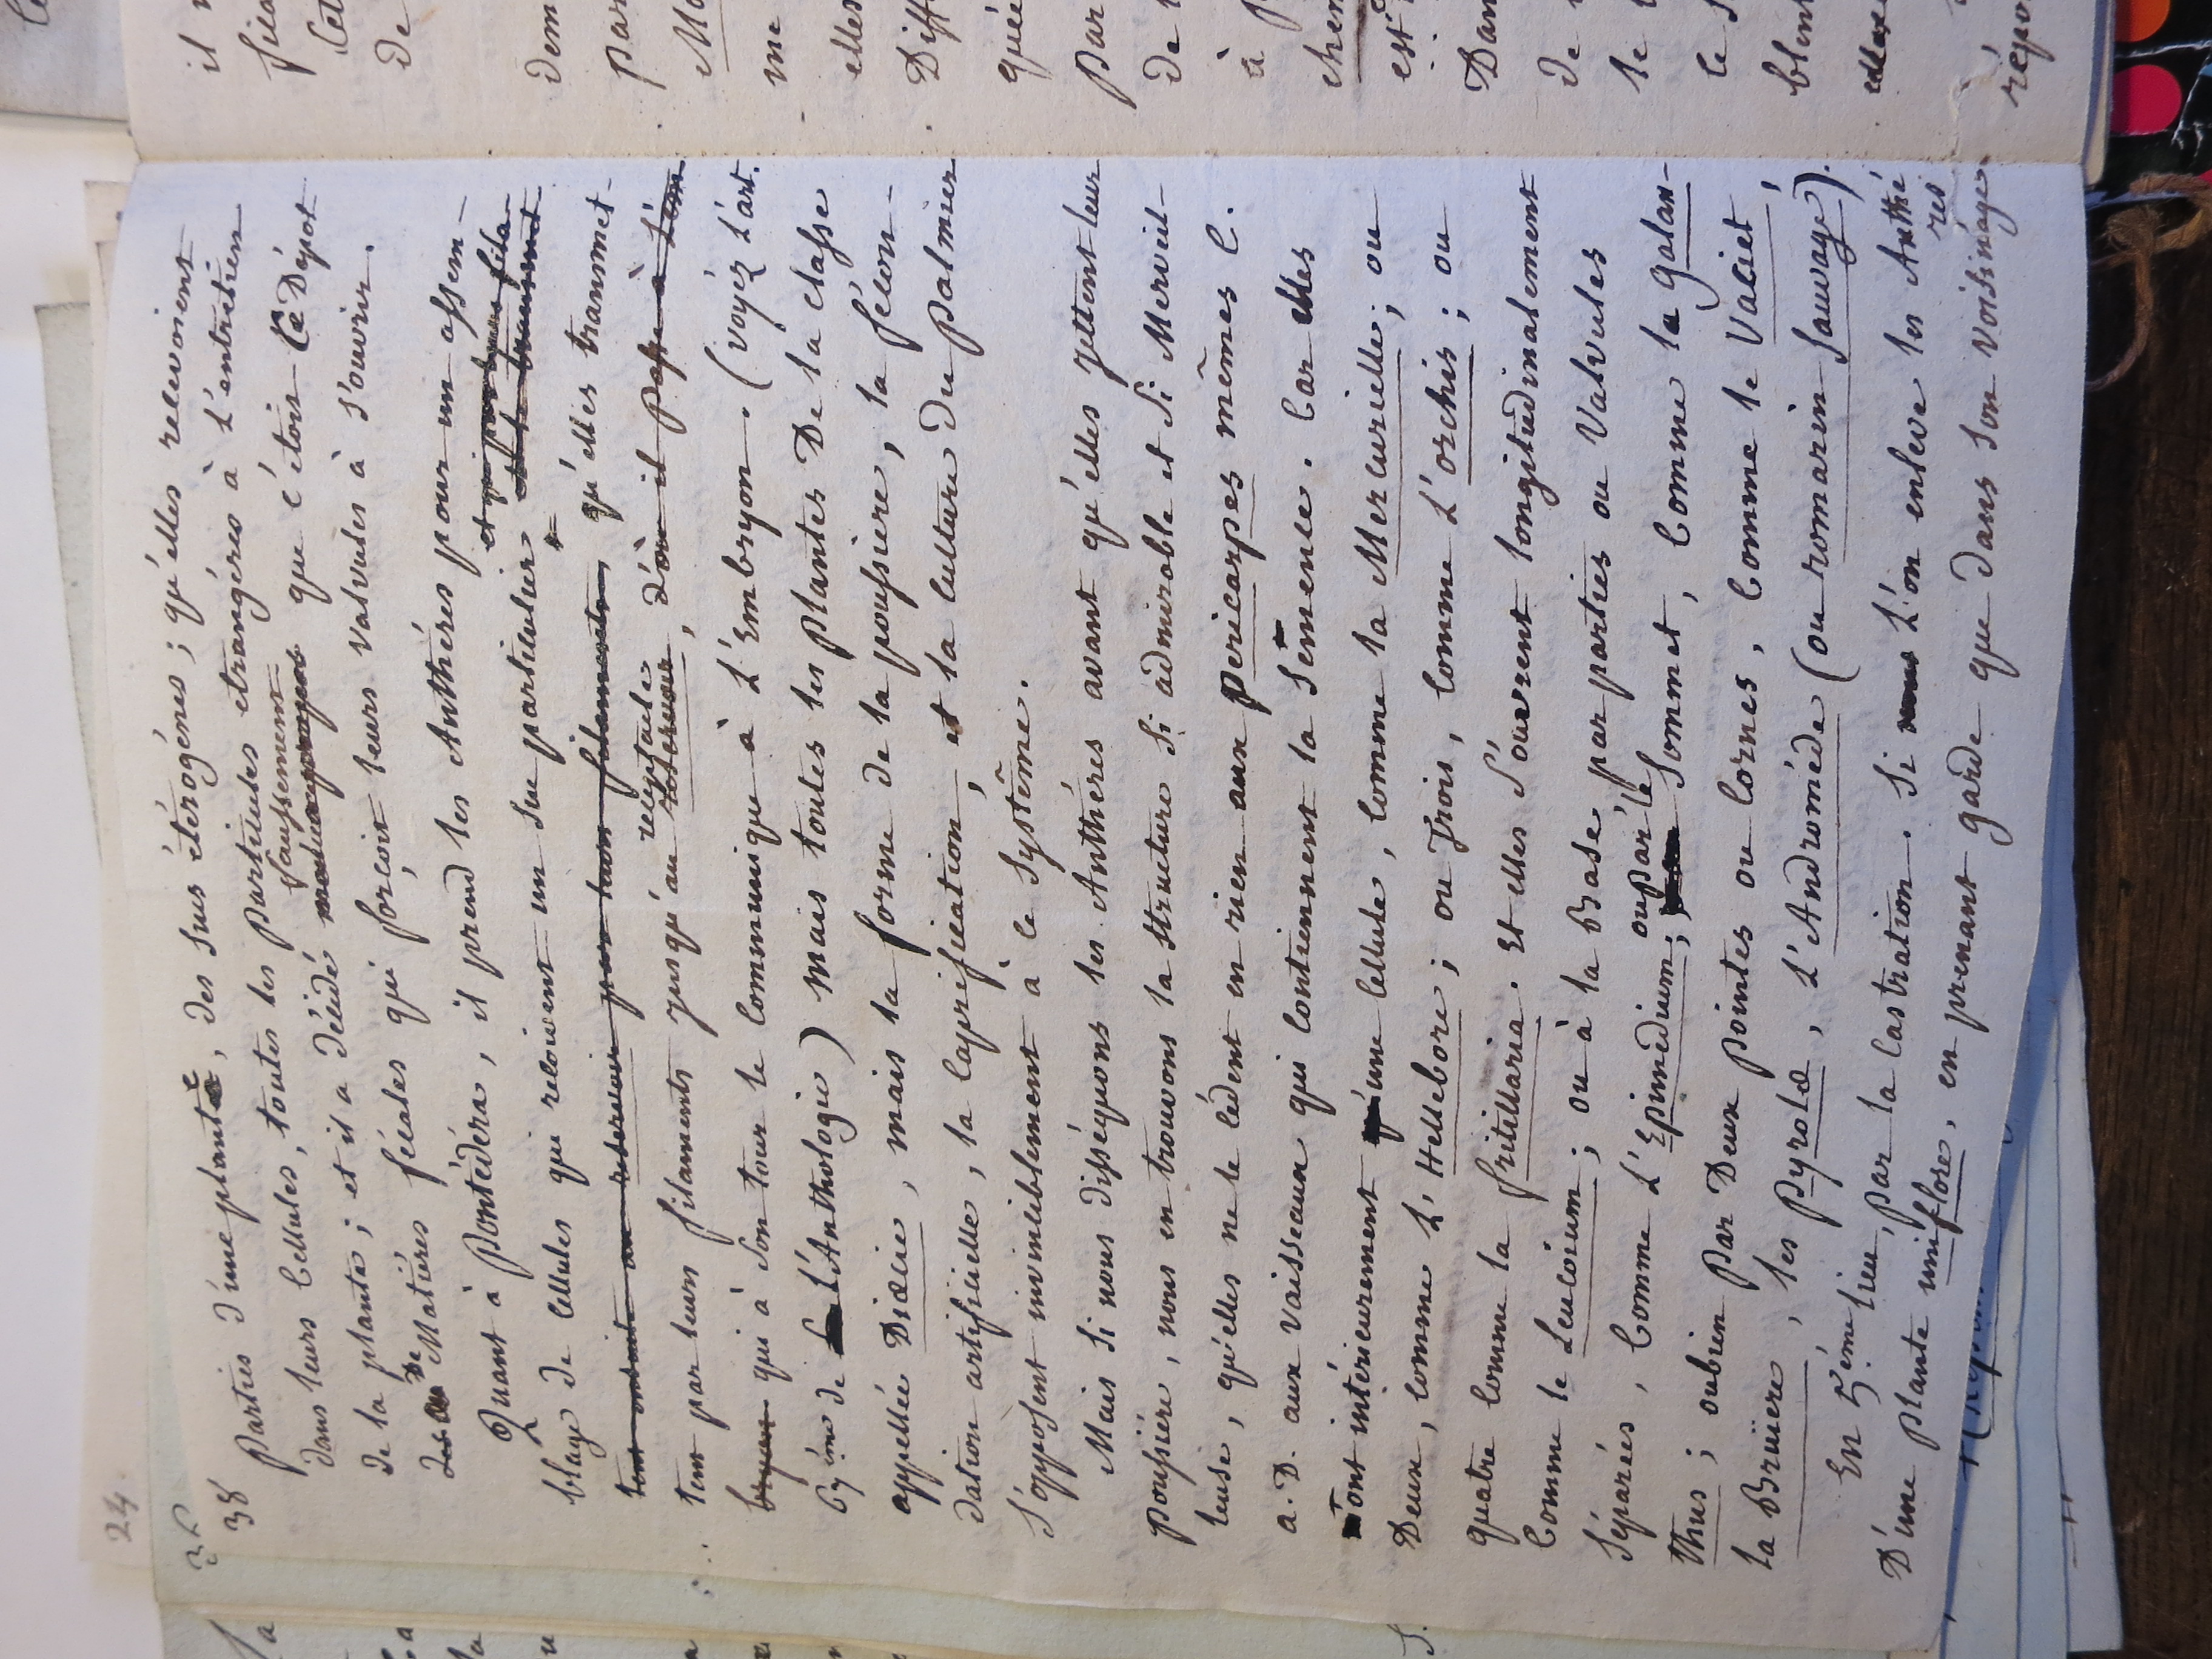 24.
38
Parties d'une plante, des sucs étérogénes ; qu'elles recevoient
dans leurs Cellules, toutes les particules etrangéres à l'entretien
de la plante ; et il a décidé faussement que c'étoit ce Dépot
De Matiéres fécales qui forçoit leurs valvules à s'ouvrir.
Quant à Pontédéra, il prend les Anthéres pour un assem-
blage de Cellules qui reçoivent un suc particulier qu'elles transmet-
tent par leurs filaments jusqu'au receptacle,
qui à son tour le communique à l'Embryon. (voyéz l'art.
6.éme de l'Anthologie) Mais toutes les plantes De la classe
appellée Diœcie, mais la forme de la poussiere, la fécon-
dation artificielle, la Caprification, et la culture du palmier
s'opposent invinciblement à ce système.
Mais si nous disséquons les Anthéres avant qu'elles jettent leur
poussiére, nous en trouvons la structure si admirable et si Merveil-
leuse, qu'elles ne le cédent en rien aux pericarpes mêmes C.
a. D. aux vaisseaux qui contiennent la Semence. Car elles
ont intérieurement une Cellule, Comme la Mercurielle ; ou
Deux, comme l'Hellebore ; ou Trois, Comme l'orchis ; ou
quatre comme la fritillaria. Et elles S'ouvrent longitudinalement
Comme le Leucoium ; ou à la Base par parties ou Valvules
séparées, Comme l'Epimedium ; ou Par le Sommet, Comme la galan-
thus ; oubien Par Deux pointes ou Cornes, Comme le Vaciet,
la Bruiere, les Pyrolæ, l'Androméde (ou romarin Sauvage).
En 5.éme lieu, Par la Castration. Si l'on enleve les Anthé
res
D'une plante uniflore, en prenant garde que dans son voisinage